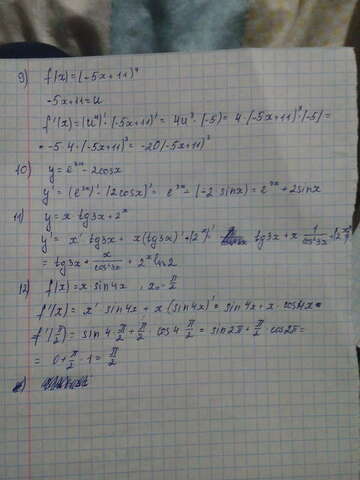 9) f(x)=(-5x+11)⁴
-5x+11=u
f'(x)=(u⁴)'·(-5x+11)'= 4u³·(-5)= 4·(-5x+11)³·(-5)=
= -5·4·(-5x+11)³= -20(-5x+11)³
10) y=e³ˣ-2cosx
y'= (e³ˣ)'-(2cosx)'= e³ˣ-(-2 sinx)= e³ˣ+2sinx
11) y=x·tg3x+2ˣ
y'= x' tg3x+ x(tg3x)'+(2ˣ)'= tg3x+x 1/cos²3x +
= tg3x+ x/cos²3x + 2ˣ ln2
12) f(x)=x sin4x , x₀= π/2
f'(x)= x' sin4x + x(sin4x)'= sin4x+x·cos4x=
f'(π/2)= sin 4·π/2+π/2·cos 4·π/2 = sin2π+π/2·cos2π=
= 0+π/2·1= π/2